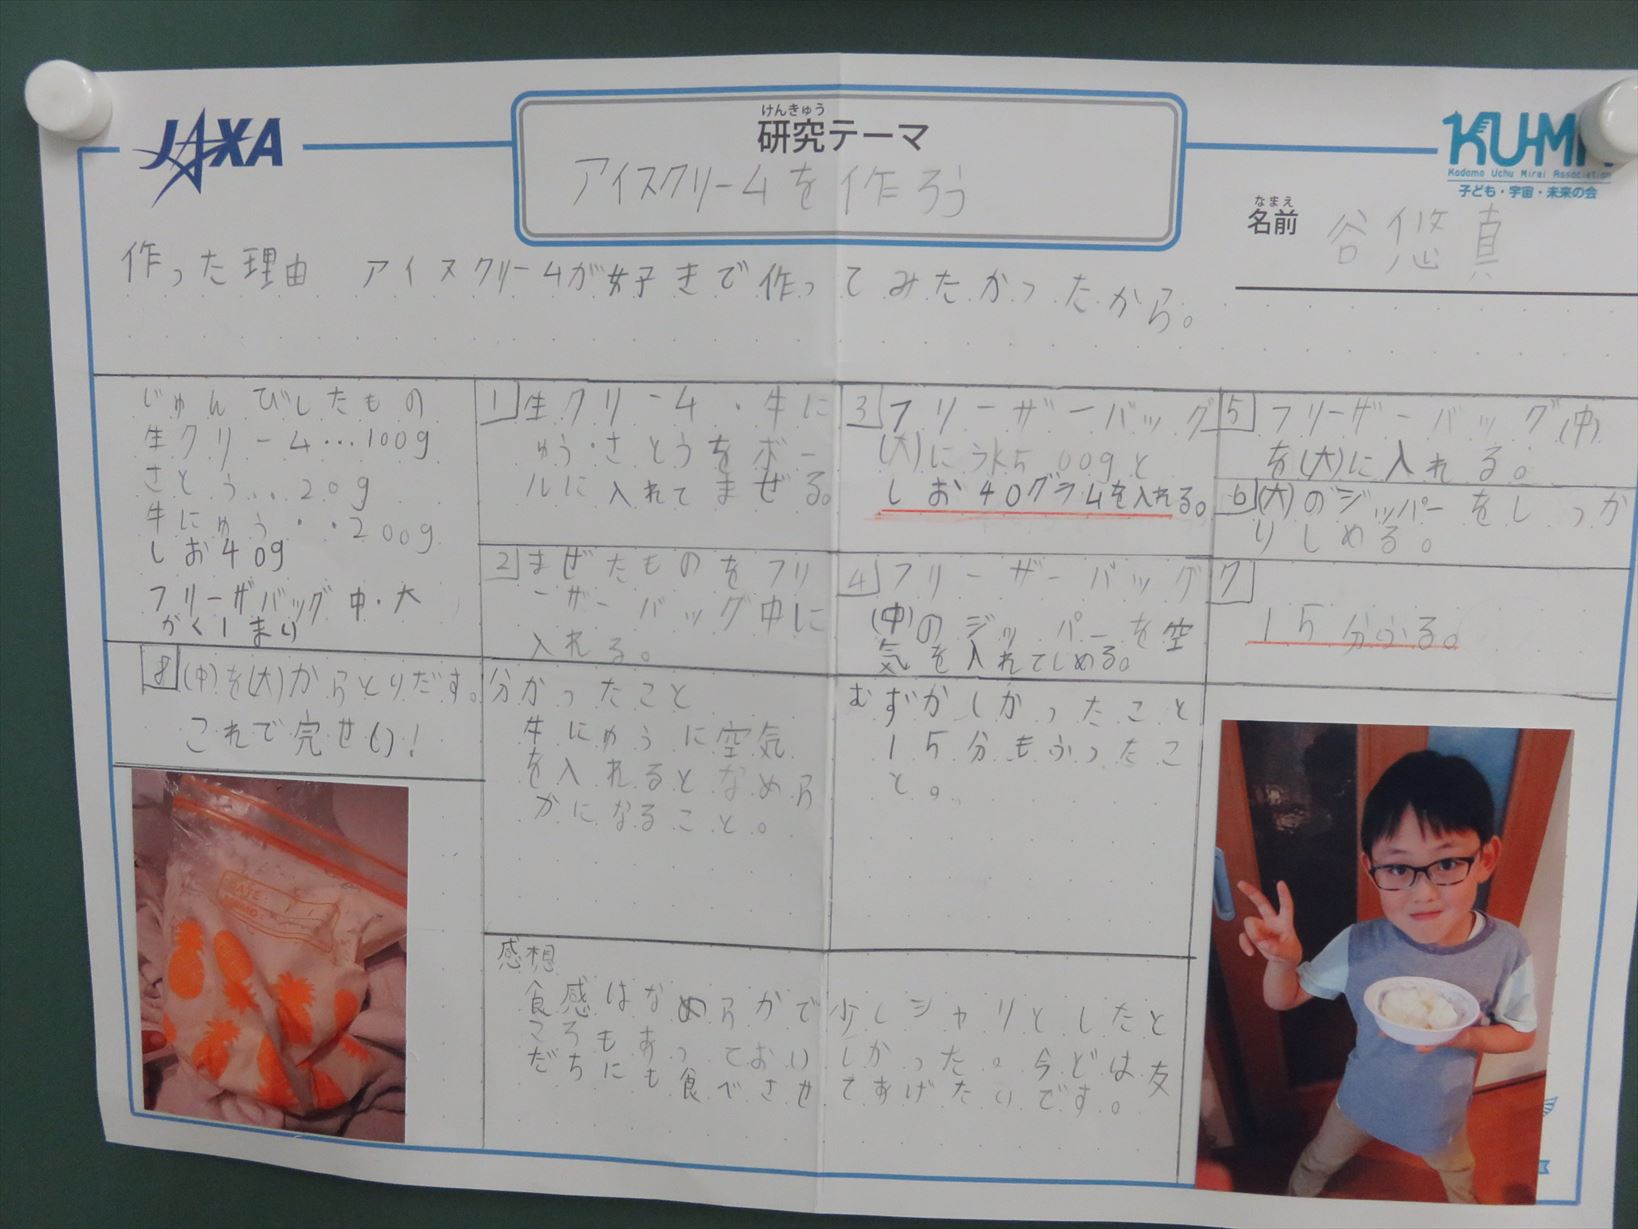 JAXA
けんきゅう
研究テーマ
アイスクリームを作ろう
Kodomo Uchu Mirai Association
子ども・宇宙・未来の会
なまえ
名前 谷悠真
作った理由 アイスクリームが好きで作ってみたかったから。
じゅんびしたもの
生クリーム…100g
さとう…20g
牛にゅう・・200g
しお40g
フリーザバッグ中・大
がくしまり
1 生クリーム・牛に
ゅう・さとうをボー
ルに入れてまぜる。
2 まぜたものをフリ
ーザーバッグ中に
入れる。
3 フリーザーバッグ
(大)に氷500gと
しお40グラムを入れる。
4 フリーザーバッグ
(中)のジッパーを空
気を入れてしめる。
5 フリーザーバッグ(中)
を(大)に入れる。
6 (大)のジッパーをしっか
りしめる。
7
15分ふる。
8 (中)を(大)からとりだす。
これで完せい!
分かったこと
牛にゅうに空気
を入れるとなめら
かになること。
むずかしかったこと
15分もふったこ
と。
感想
食感はなめらかで少しシャリとしたと
ころもあっておいしかった。今どは友
だちにも食べさせてあげたいです。
DATE: